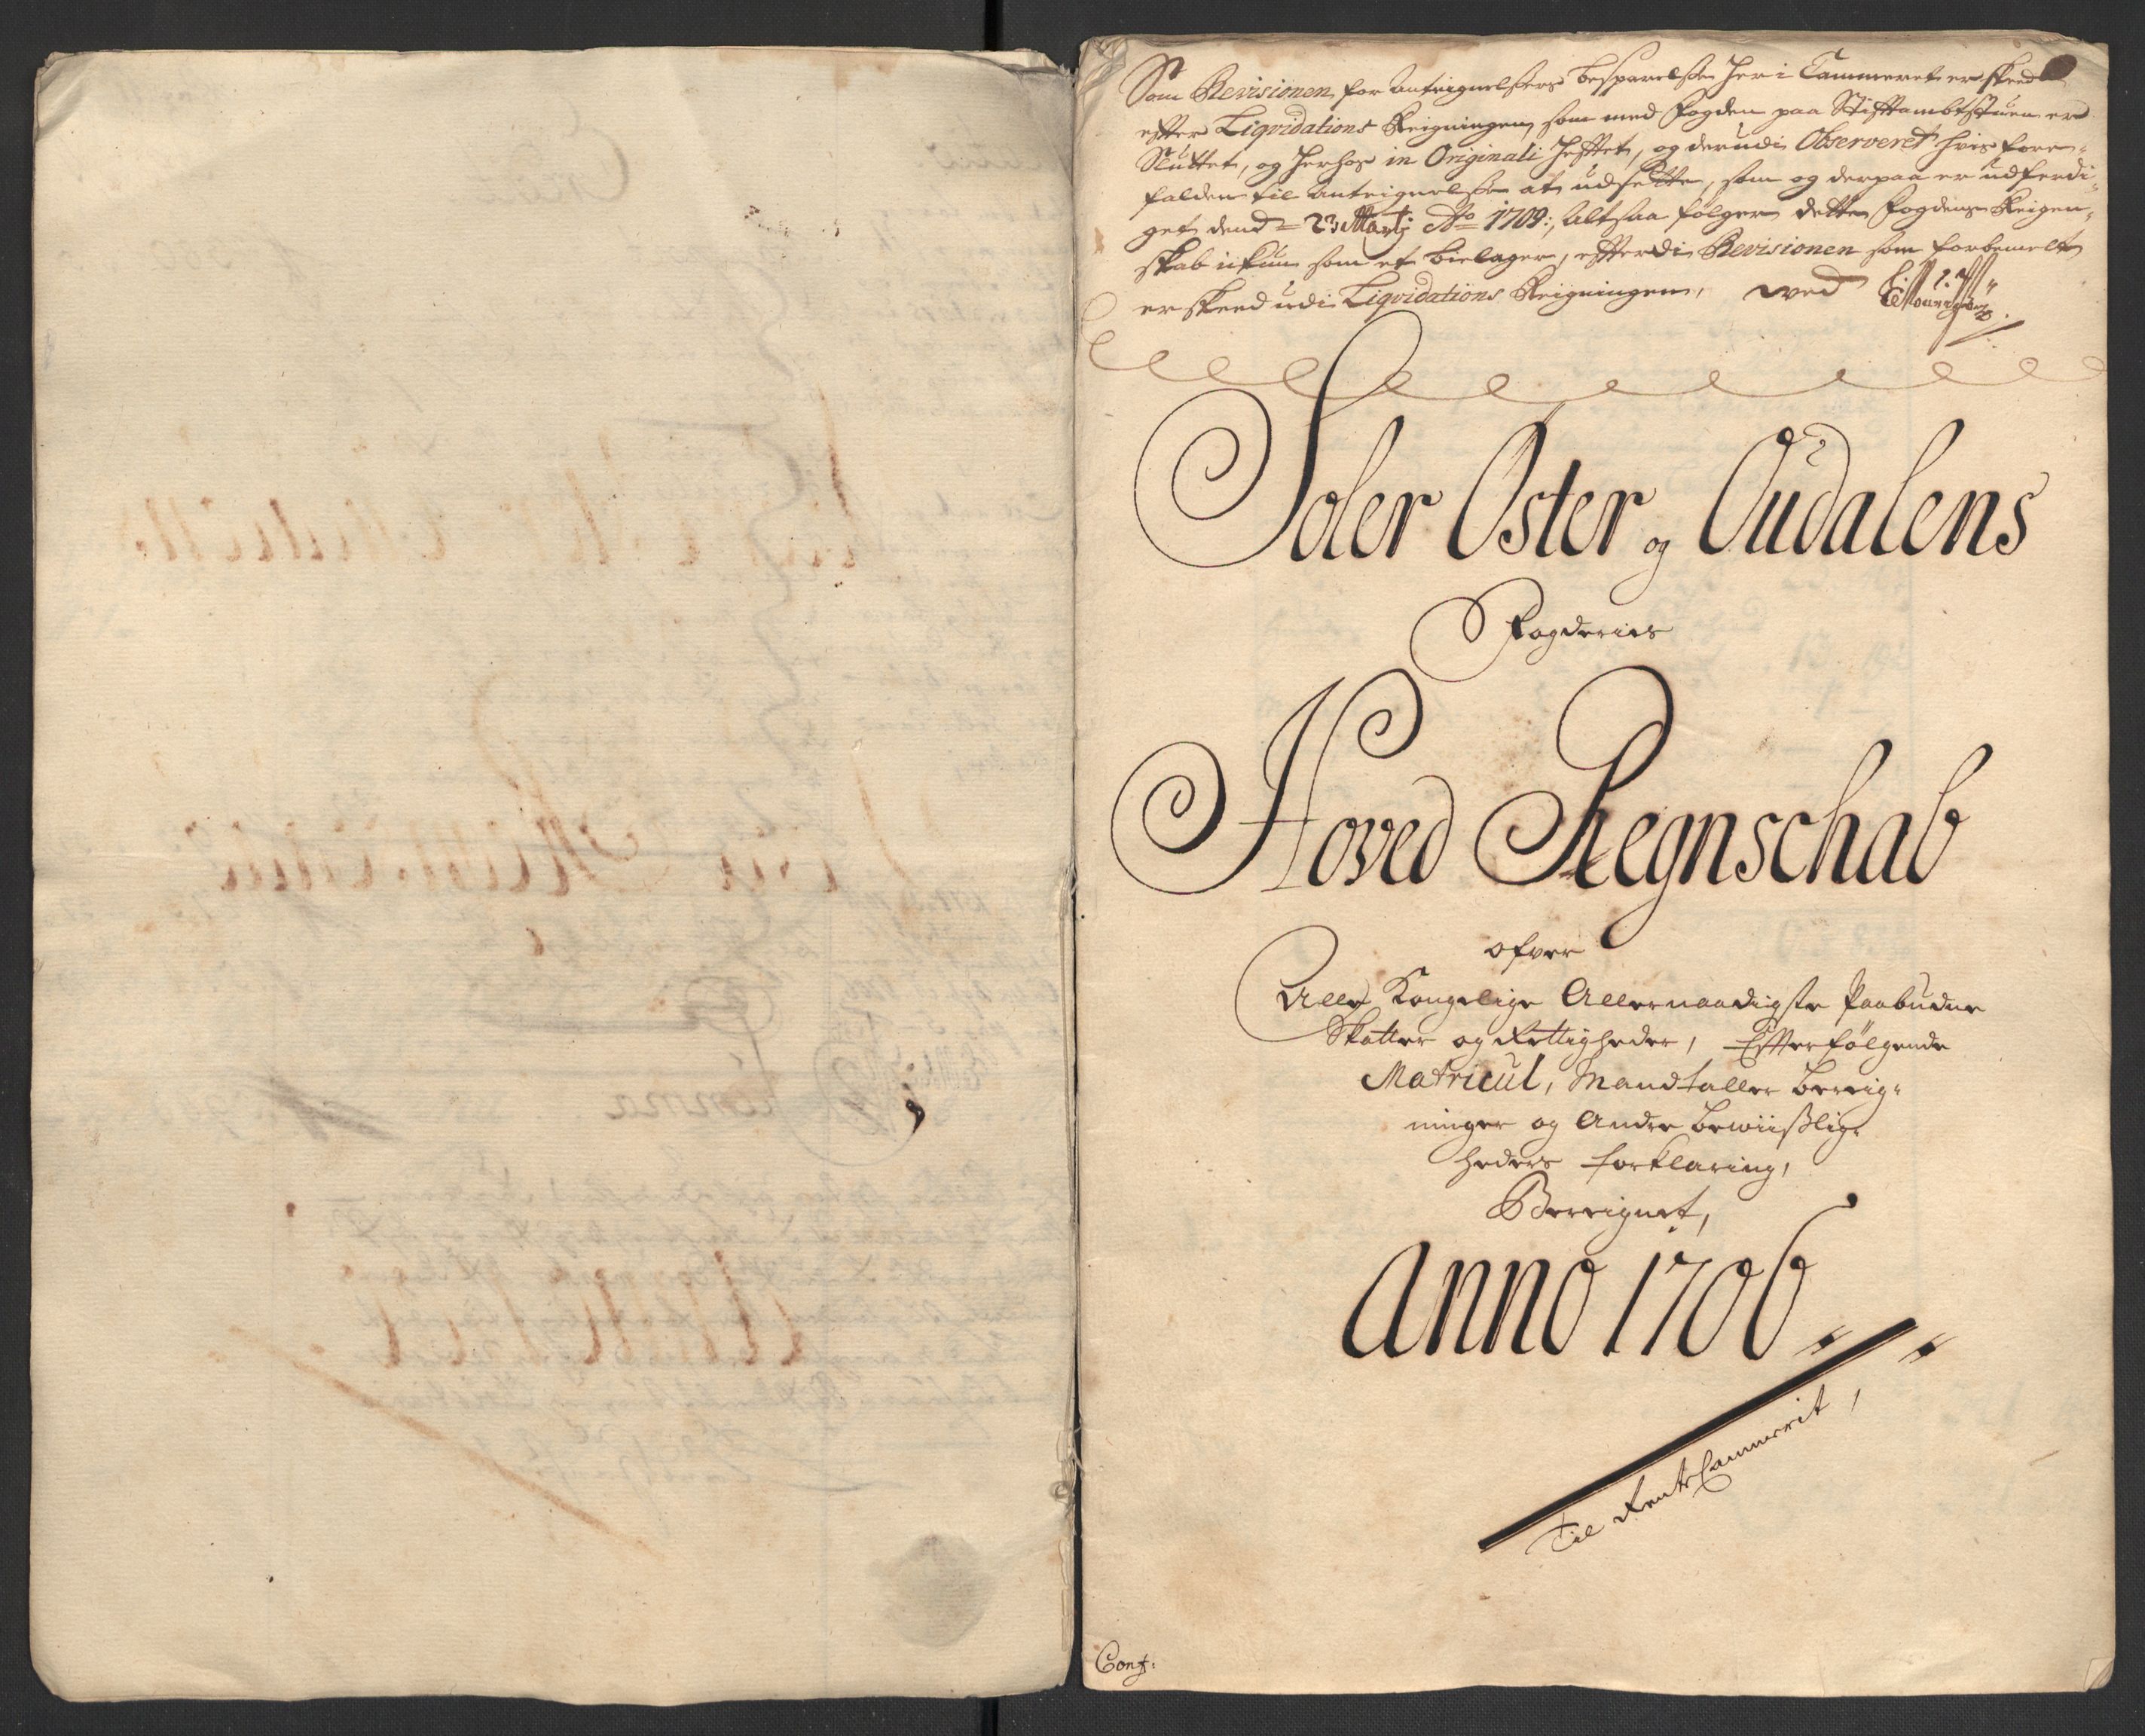 Som Revisionen for Antegnelsers besparelse her i Cammeret er skeed
efter Liqvidations Reigningen, som med fogden paa Stiftambtstuen er
Sluttet, og herhos in Originali heftet, og derudi Observeret hvis fore-
falden til Antegnelse at udsette, som og derpaa er udferdi-
get dend 23 Martj Ao 1709:, Altsaa følger dette fogdens Reigen-
skab ickun som et bielager, efterdi Revisionen som forbemelt
er skeed udi Liqvidations Reigningen, ved
Soler Oster og Oudalens
Fogderies
Hoved Regnschab
ofver
Alle Kongelige Allernaadigste Paabudne
Skatter og Rettigheder, Efterfølgende
Matricul, Mandtaller bereig-
ninger og Andre bewiisslig-
heders forklaring,
Bereignet,
Anno 1706
Til Rente Cammerit,
Conf: